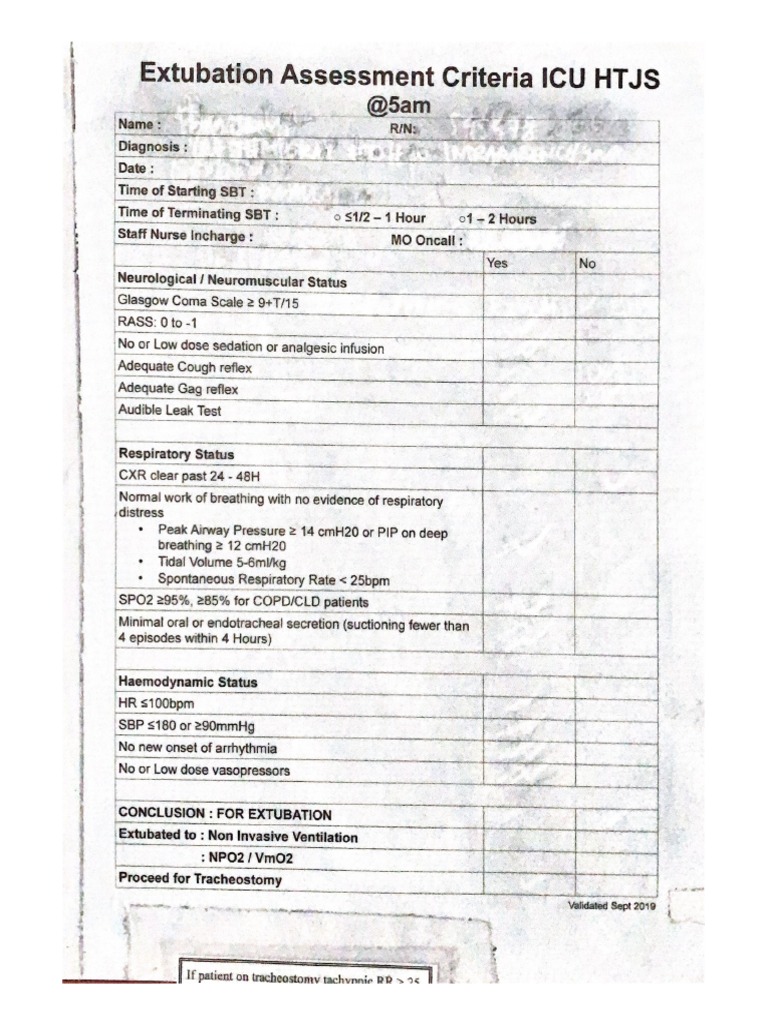 Extubation Assessment Criteria ICU HTJS
@5am
Name : R/N:
Diagnosis :
Date :
Time of Starting SBT :
Time of Terminating SBT : ○ ≤1/2 – 1 Hour ○1 – 2 Hours
Staff Nurse Incharge : MO Oncall :
Yes No
Neurological / Neuromuscular Status
Glasgow Coma Scale ≥ 9+T/15
RASS: 0 to -1
No or Low dose sedation or analgesic infusion
Adequate Cough reflex
Adequate Gag reflex
Audible Leak Test
Respiratory Status
CXR clear past 24 - 48H
Normal work of breathing with no evidence of respiratory
distress
• Peak Airway Pressure ≥ 14 cmH20 or PIP on deep
breathing ≥ 12 cmH20
• Tidal Volume 5-6ml/kg
• Spontaneous Respiratory Rate < 25bpm
SPO2 ≥95%, ≥85% for COPD/CLD patients
Minimal oral or endotracheal secretion (suctioning fewer than
4 episodes within 4 Hours)
Haemodynamic Status
HR ≤100bpm
SBP ≤180 or ≥90mmHg
No new onset of arrhythmia
No or Low dose vasopressors
CONCLUSION : FOR EXTUBATION
Extubated to : Non Invasive Ventilation
: NPO2 / VmO2
Proceed for Tracheostomy
Validated Sept 2019
If patient on tracheostomy tachypnic RR > 25